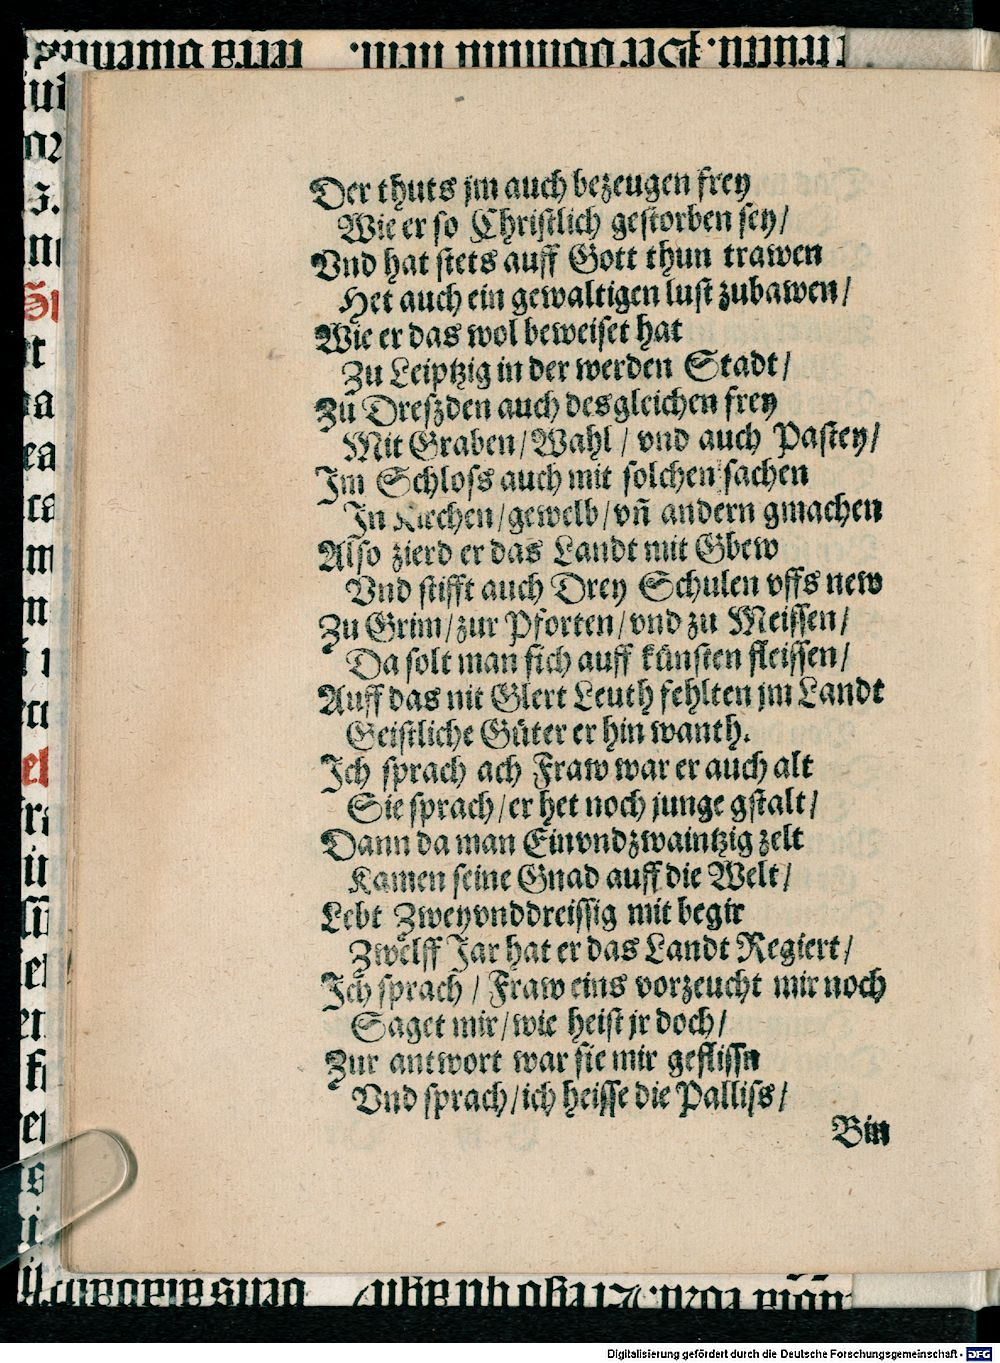 Der thuts jm auch bezeugen frey
Wie er so Christlich gestorben sey/
Vnd hat stets auff Gott thun trawen
Het auch ein gewaltigen lust zubawen/
Wie er das wol beweiset hat
Zu Leiptzig in der werden Stadt/
Zu Dreszden auch desgleichen frey
Mit Graben/Wahl/ vnd auch Pastey/
Im Schloss auch mit solchen sachen
In Kirchen/gewelb/vñ andern gmachen
Also zierd er das Landt mit Gbew
Vnd stifft auch Drey Schulen vffs new
Zu Grim/zur Pforten/vnd zu Meissen/
Da solt man sich auff künsten fleissen/
Auff das nit Glert Leuth fehlten jm Landt
Geistliche Güter er hin wanth.
Ich sprach ach Fraw war er auch alt
Sie sprach/er het noch junge gstalt/
Dann da man Einvndzwaintzig zelt
Kamen seine Gnad auff die Welt/
Lebt Zweyvnddreissig mit begir
Zwelff Jar hat er das Landt Regiert/
Ich sprach/ Fraw eins vorzeucht mir noch
Saget mir/wie heist jr doch/
Zur antwort war sie mir geflissn
Vnd sprach/ich heisse die Palliss/
Bin
Digitalisierung gefördert durch die Deutsche Forschungsgemeinschaft - DFG